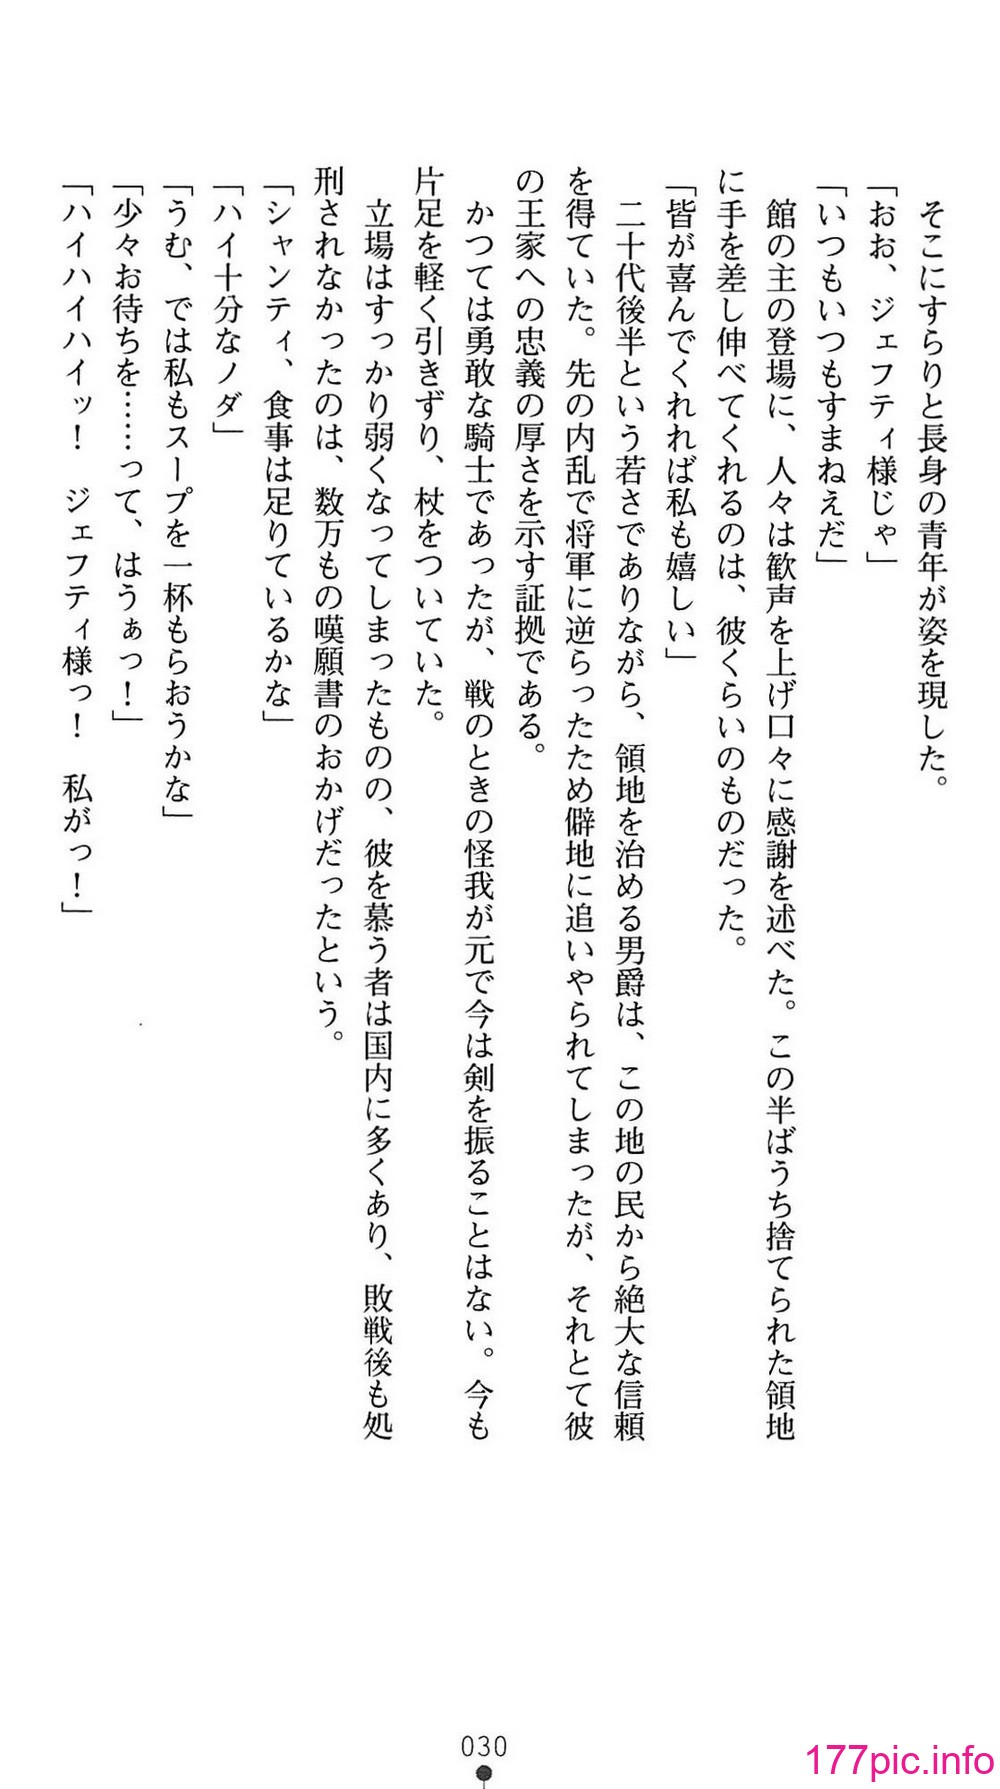 そこにすらりと長身の青年が姿を現した。
「おお、ジェフティ様じゃ」
「いつもいつもすまねえだ」
　館の主の登場に、人々は歓声を上げ口々に感謝を述べた。この半ばうち捨てられた領地
に手を差し伸べてくれるのは、彼くらいのものだった。
「皆が喜んでくれれば私も嬉しい」
　二十代後半という若さでありながら、領地を治める男爵は、この地の民から絶大な信頼
を得ていた。先の内乱で将軍に逆らったため僻地に追いやられてしまったが、それとて彼
の王家への忠義の厚さを示す証拠である。
　かつては勇敢な騎士であったが、戦のときの怪我が元で今は剣を振ることはない。今も
片足を軽く引きずり、杖をついていた。
　立場はすっかり弱くなってしまったものの、彼を慕う者は国内に多くあり、敗戦後も処
刑されなかったのは、数万もの嘆願書のおかげだったという。
「シャンティ、食事は足りているかな」
「ハイ十分なノダ」
「うむ、では私もスープを一杯もらおうかな」
「少々お待ちを……って、はうぁっ！」
「ハイハイハイッ！　ジェフティ様っ！　私がっ！」
030
177pic.info